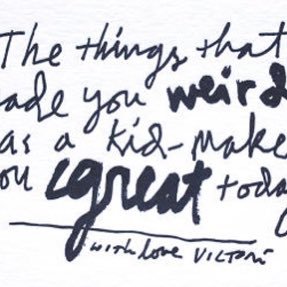 The things that
ade you weird
as a kid-make
ou great today
with love Victori